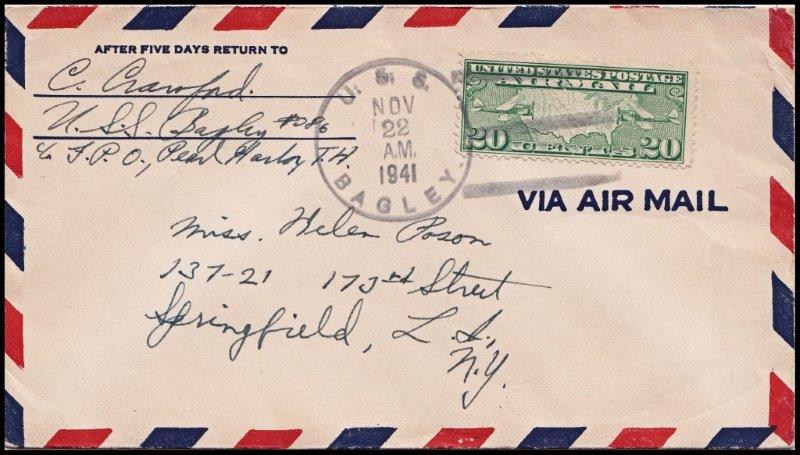 AFTER FIVE DAYS RETURN TO
C. Crawford.
U.S.S. Bagley #386
℅ F.P.O., Pearl Harbor, T.H.
U. S. S.
NOV
22
A.M.
1941
BAGLEY.
UNITED STATES POSTAGE
AIR MAIL
20 CENTS 20
VIA AIR MAIL
Miss. Helen Poson
137-21 173rd Street
Springfield, L. I.,
N.Y.